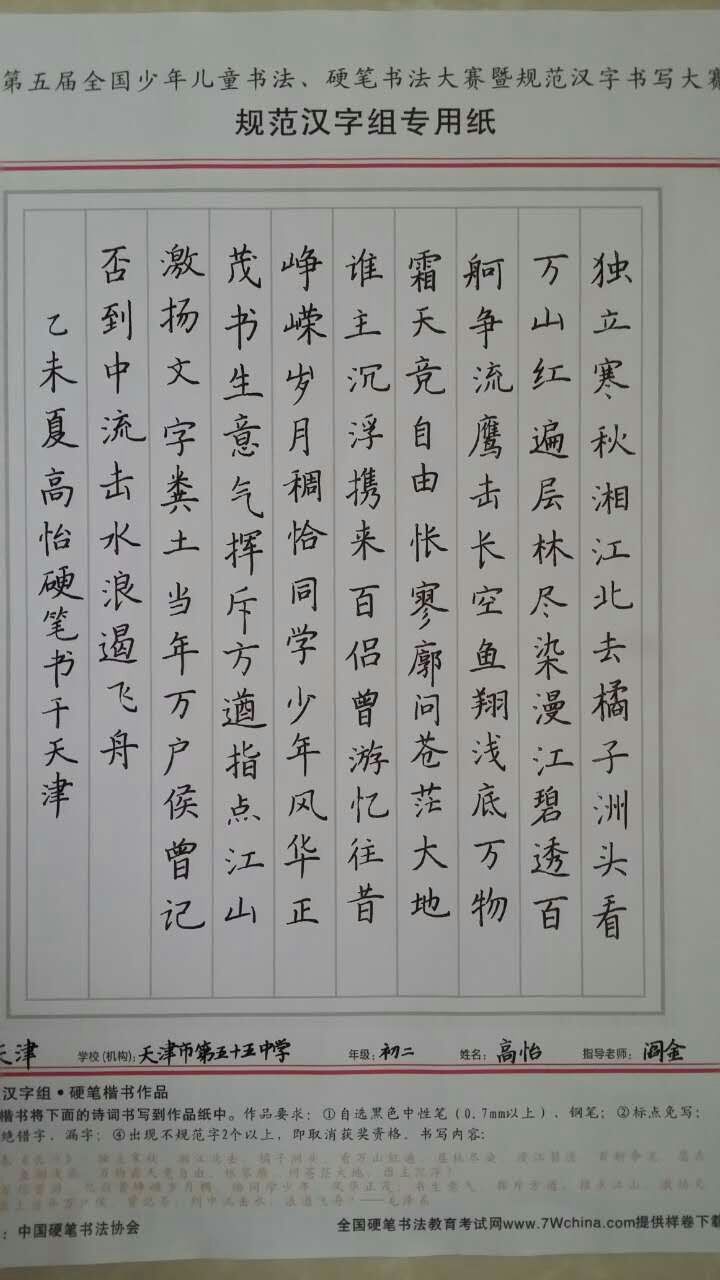 第五届全国少年儿童书法、硬笔书法大赛暨规范汉字书写大赛
规范汉字组专用纸
独立寒秋湘江北去橘子洲头看
万山红遍层林尽染漫江碧透百
舸争流鹰击长空鱼翔浅底万物
霜天竞自由怅寥廓问苍茫大地
谁主沉浮携来百侣曾游忆往昔
峥嵘岁月稠恰同学少年风华正
茂书生意气挥斥方遒指点江山
激扬文字粪土当年万户侯曾记
否到中流击水浪遏飞舟
乙未夏高怡硬笔书于天津
天津 学校(机构): 天津市第五十五中学 年级: 初二 姓名: 高怡 指导老师: 阎金
汉字组·硬笔楷书作品
楷书将下面的诗词书写到作品纸中。作品要求: ①自选黑色中性笔(0.7mm以上)、钢笔; ②标点免写;
绝错字、漏字; ④出现不规范字2个以上, 即取消获奖资格。书写内容:
: 中国硬笔书法协会 全国硬笔书法教育考试网www.7Wchina.com提供样卷下载